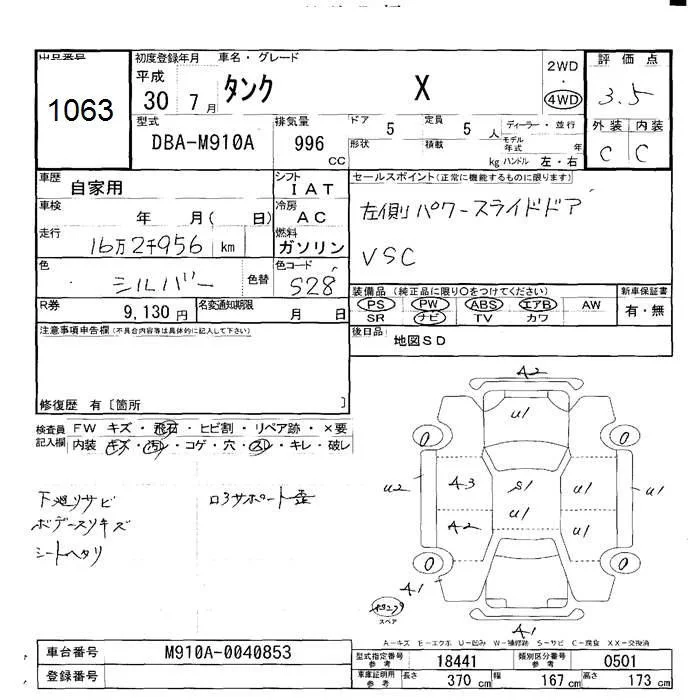 出品番号
1063
初度登録年月
車名・グレード
平成
30 7 月
タンク X
2WD
・
4WD
評価点
3.5
外装 内装
C C
型式
DBA-M910A
排気量
996
CC
ドア 5
定員 5 人
形状
積載 kg
ディーラー・並行
モデル年式 年
ハンドル 左・右
車歴 自家用
シフト IAT
車検 年 月( 日)
冷房 AC
走行 16万2千956 km
燃料 ガソリン
色 シルバー 色替
色コード S28
セールスポイント(正常に機能するものに限ります)
左側パワースライドドア
VSC
R券 9,130 円
名変通知期限 月 日
装備品(純正品に限り○をつけてください)
PS PW ABS エアB AW
SR ナビ TV カワ
新車保証書
有・無
注意事項申告欄(不具合内容等は具体的に記入して下さい)
後日品 地図SD
修復歴 有〔箇所 〕
検査員記入欄
FW キズ・飛石・ヒビ割・リペア跡・×要
内装 キズ・汚レ・コゲ・穴・スレ・キレ・破レ
下廻りサビ
ボデースリキズ
シートヘタリ
ロアサポート歪
A2
U1
0 0
U2 A3 S1 U1 U1
A2 U1 U1
0 0
A1
スペア
A1
A-キズ E-エクボ U-凹み W-補修跡 S-サビ C-腐食 XX-交換済
車台番号 M910A-0040853
登録番号
型式指定番号 参考 18441
類別区分番号 参考 0501
車庫証明用 参考 長さ 370 cm 幅 167 cm 高さ 173 cm